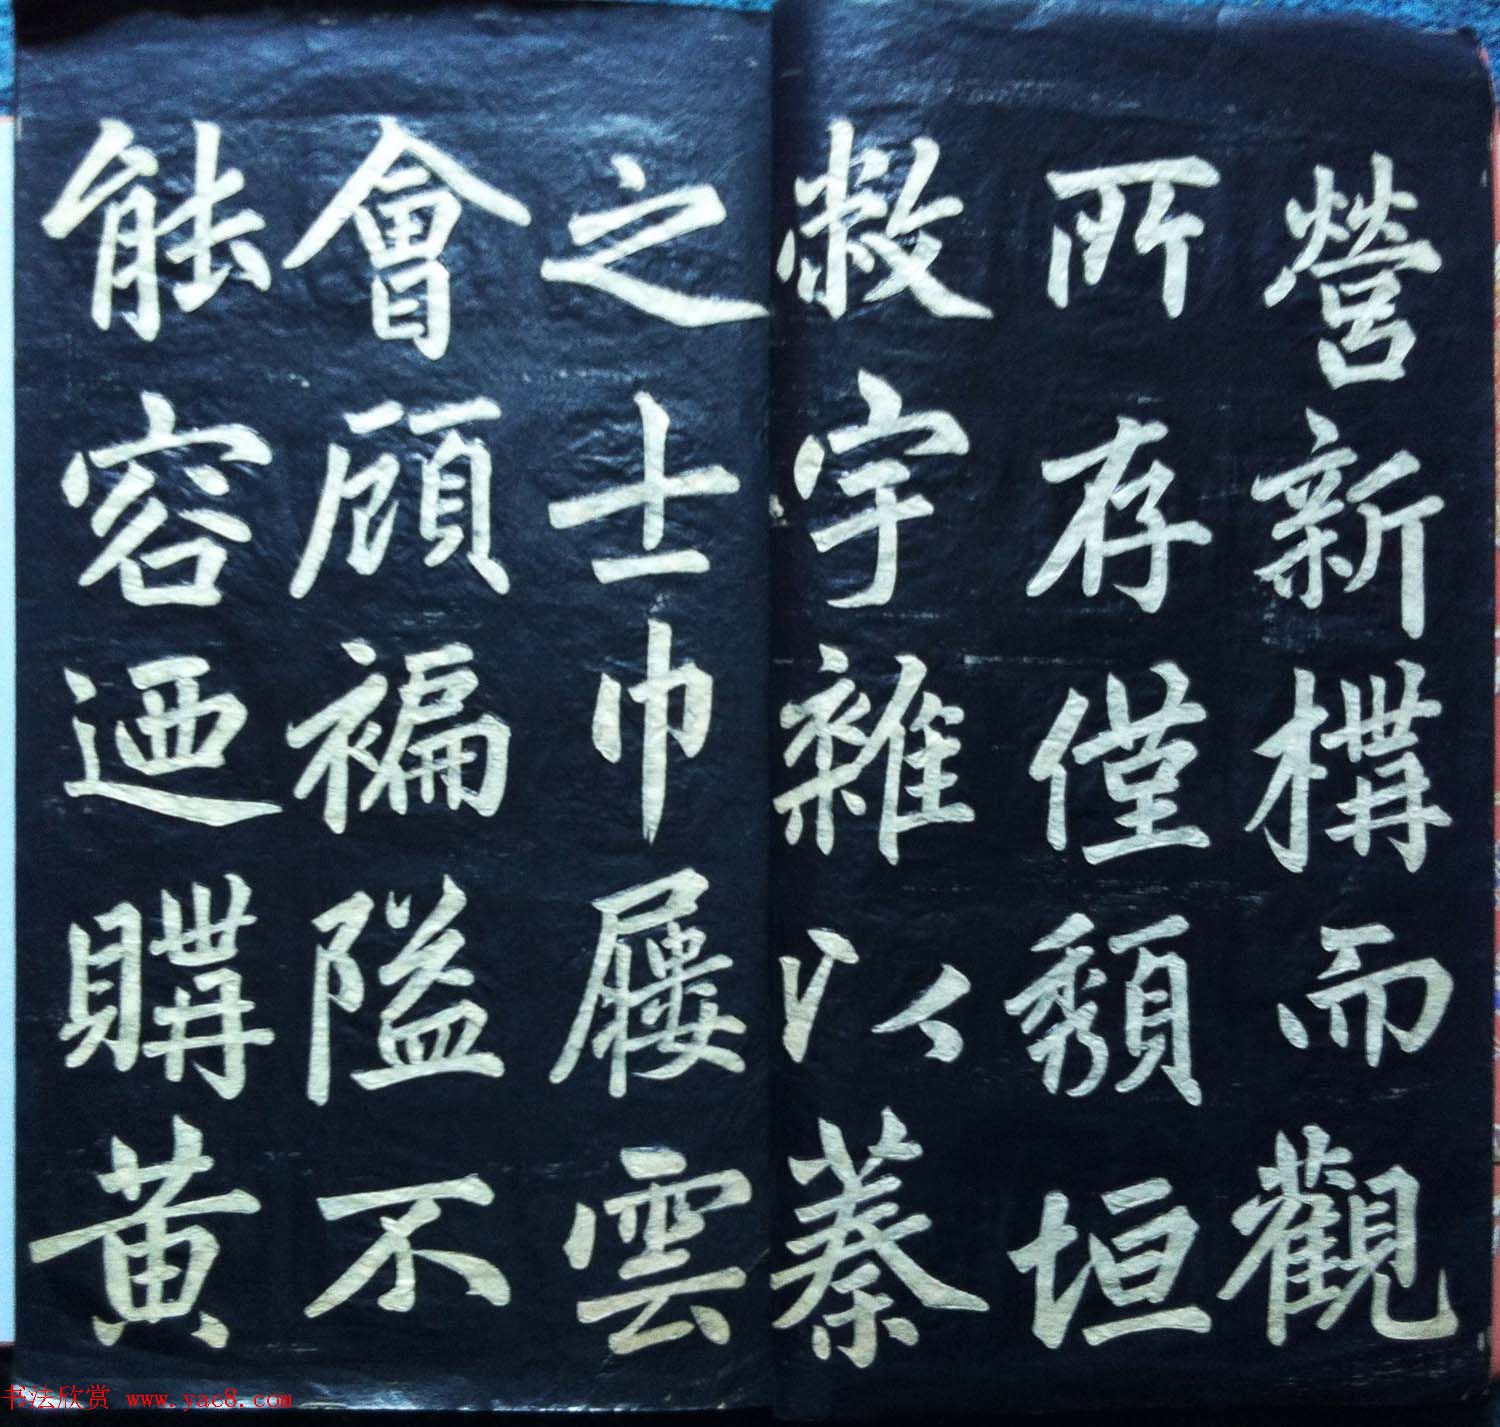 營新構而觀
所存僅頽垣
敝宇雜以蓁
之士巾屨雲
會顧褊隘不
能容迺購黄
书法欣赏 www.yac8.com